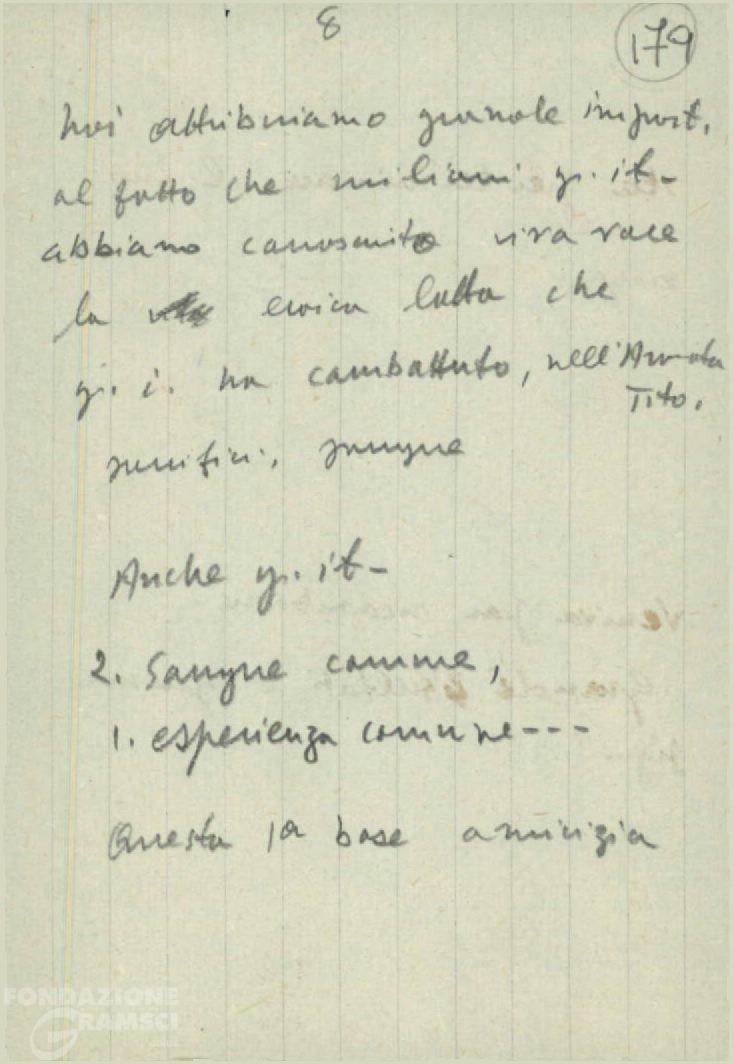 8
179
Noi attribuiamo grande import.
al fatto che milioni g. it-
abbiano conosciuto viva voce
la eroica lotta che
g. i. ha combattuto, nell'Armata
Tito.
sacrifici, sangue
Anche g. it-
2. Sangue comune,
1. esperienza comune---
Questa la base amicizia
FONDAZIONE
GRAMSCI